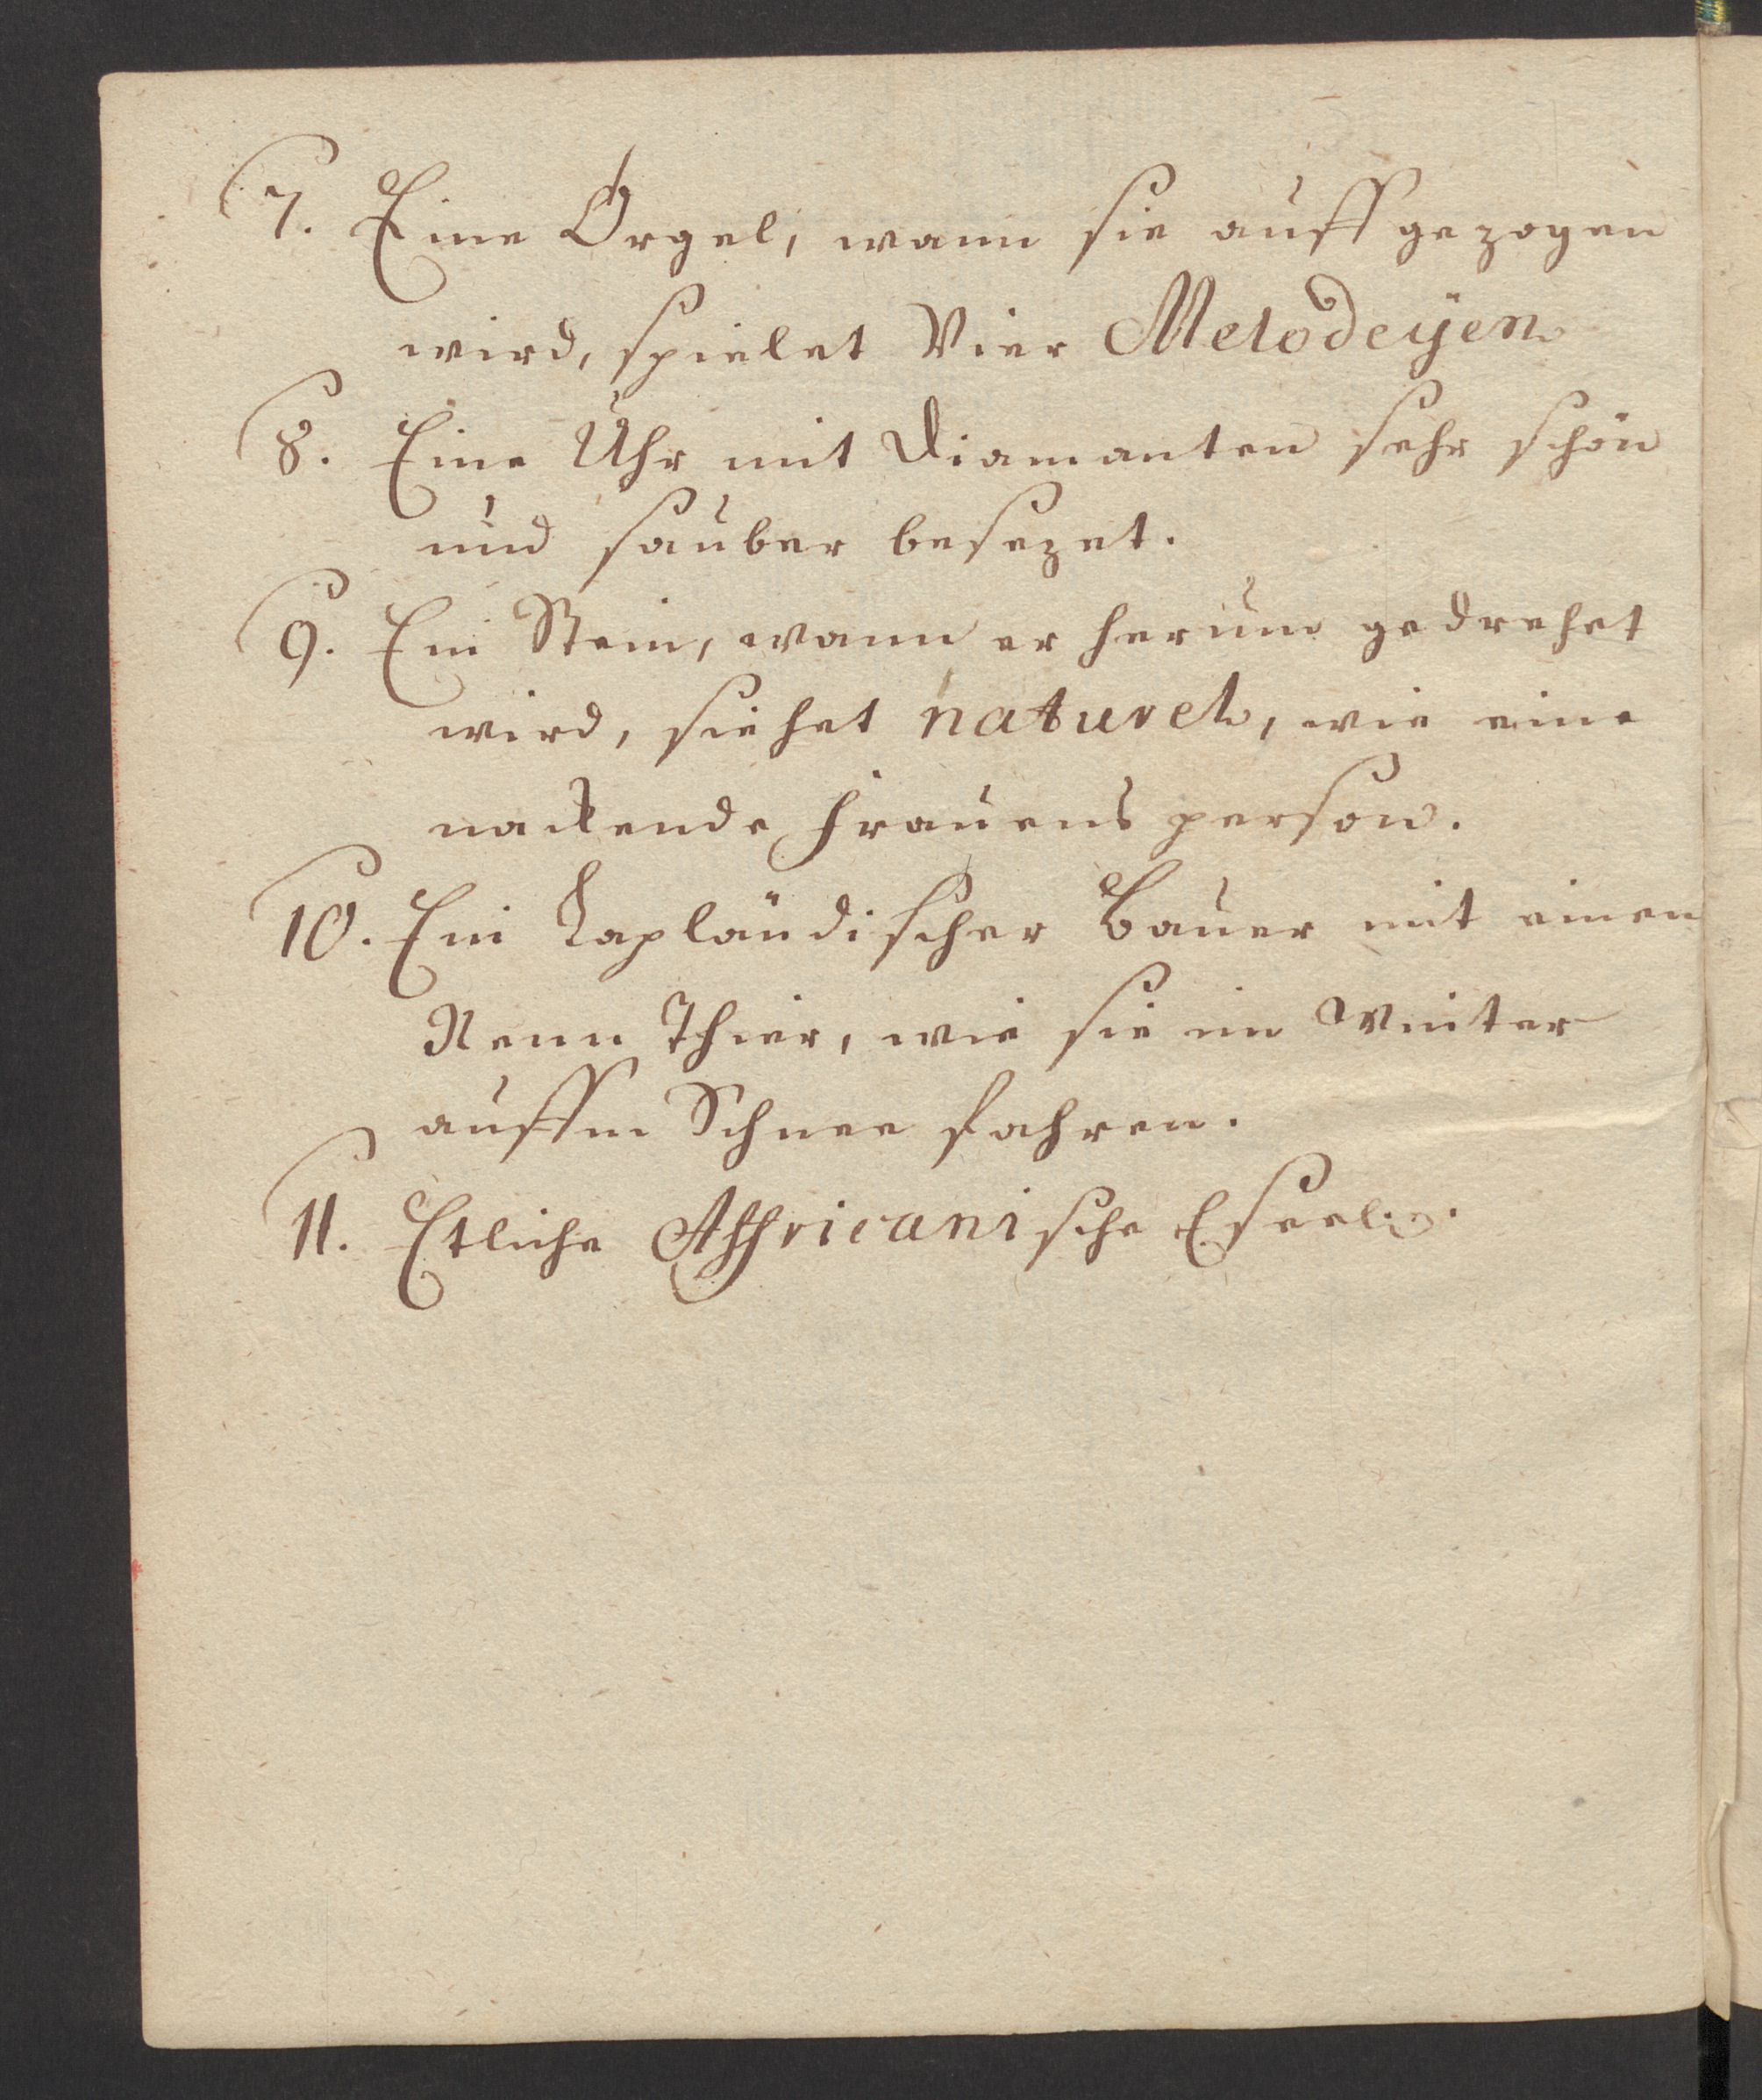 7. Eine Orgel, wann sie auff gezogen
wird, spielet Vier Melodeyen
8. Eine Uhr mit Diamanten sehr schön
und sauber besezet.
9. Ein Stein, wann er herum gedrehet
wird, siehet naturel, wie eine
nackende Frauens person.
10. Ein Lapländischer Bauer mit einen
Renn Thier, wie sie im Winter
auffm Schnee fahren.
11. Etliche Affricanische Eseel.